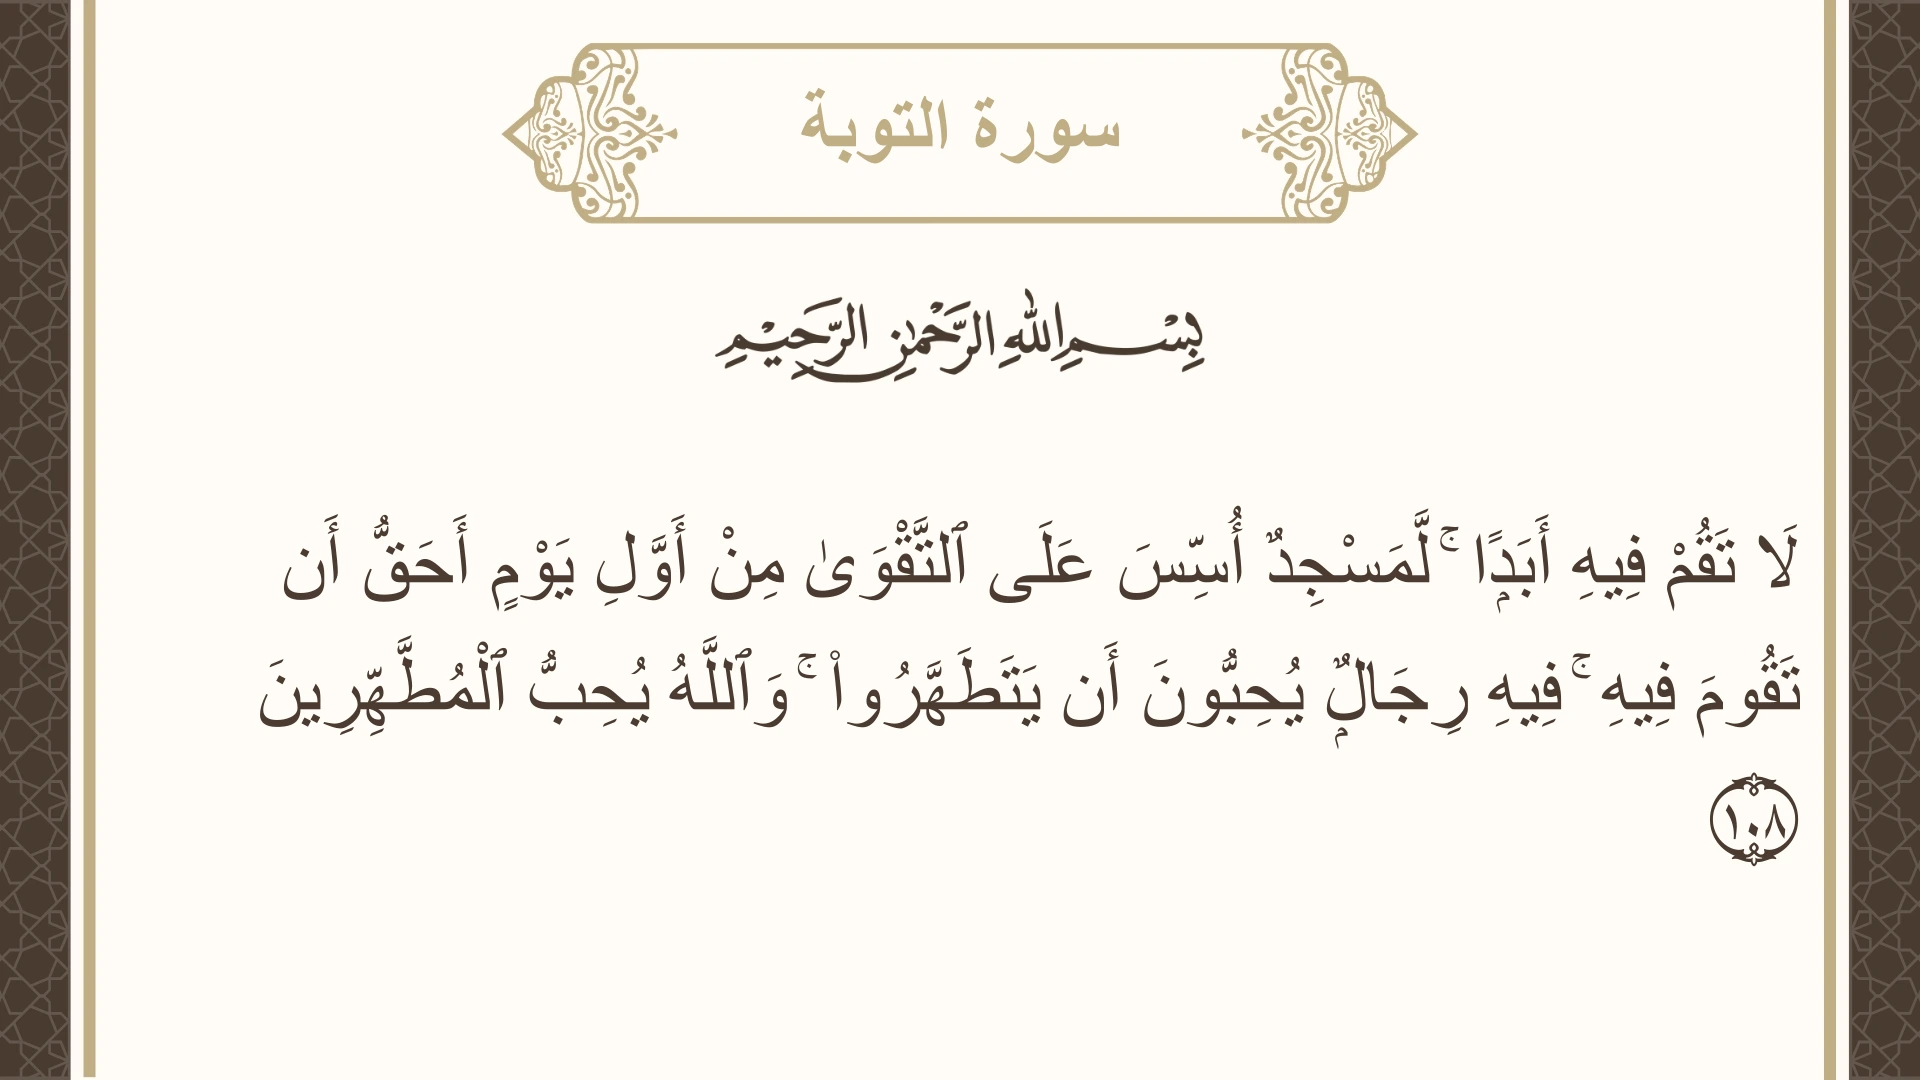 سورة التوبة
بِسْمِ اللهِ الرَّحْمٰنِ الرَّحِيْمِ
لَا تَقُمْ فِيهِ أَبَدًۭا ۚ لَّمَسْجِدٌ أُسِّسَ عَلَى ٱلتَّقْوَىٰ مِنْ أَوَّلِ يَوْمٍ أَحَقُّ أَن
تَقُومَ فِيهِ ۚ فِيهِ رِجَالٌۭ يُحِبُّونَ أَن يَتَطَهَّرُوا۟ ۚ وَٱللَّهُ يُحِبُّ ٱلْمُطَّهِّرِينَ
١٠٨